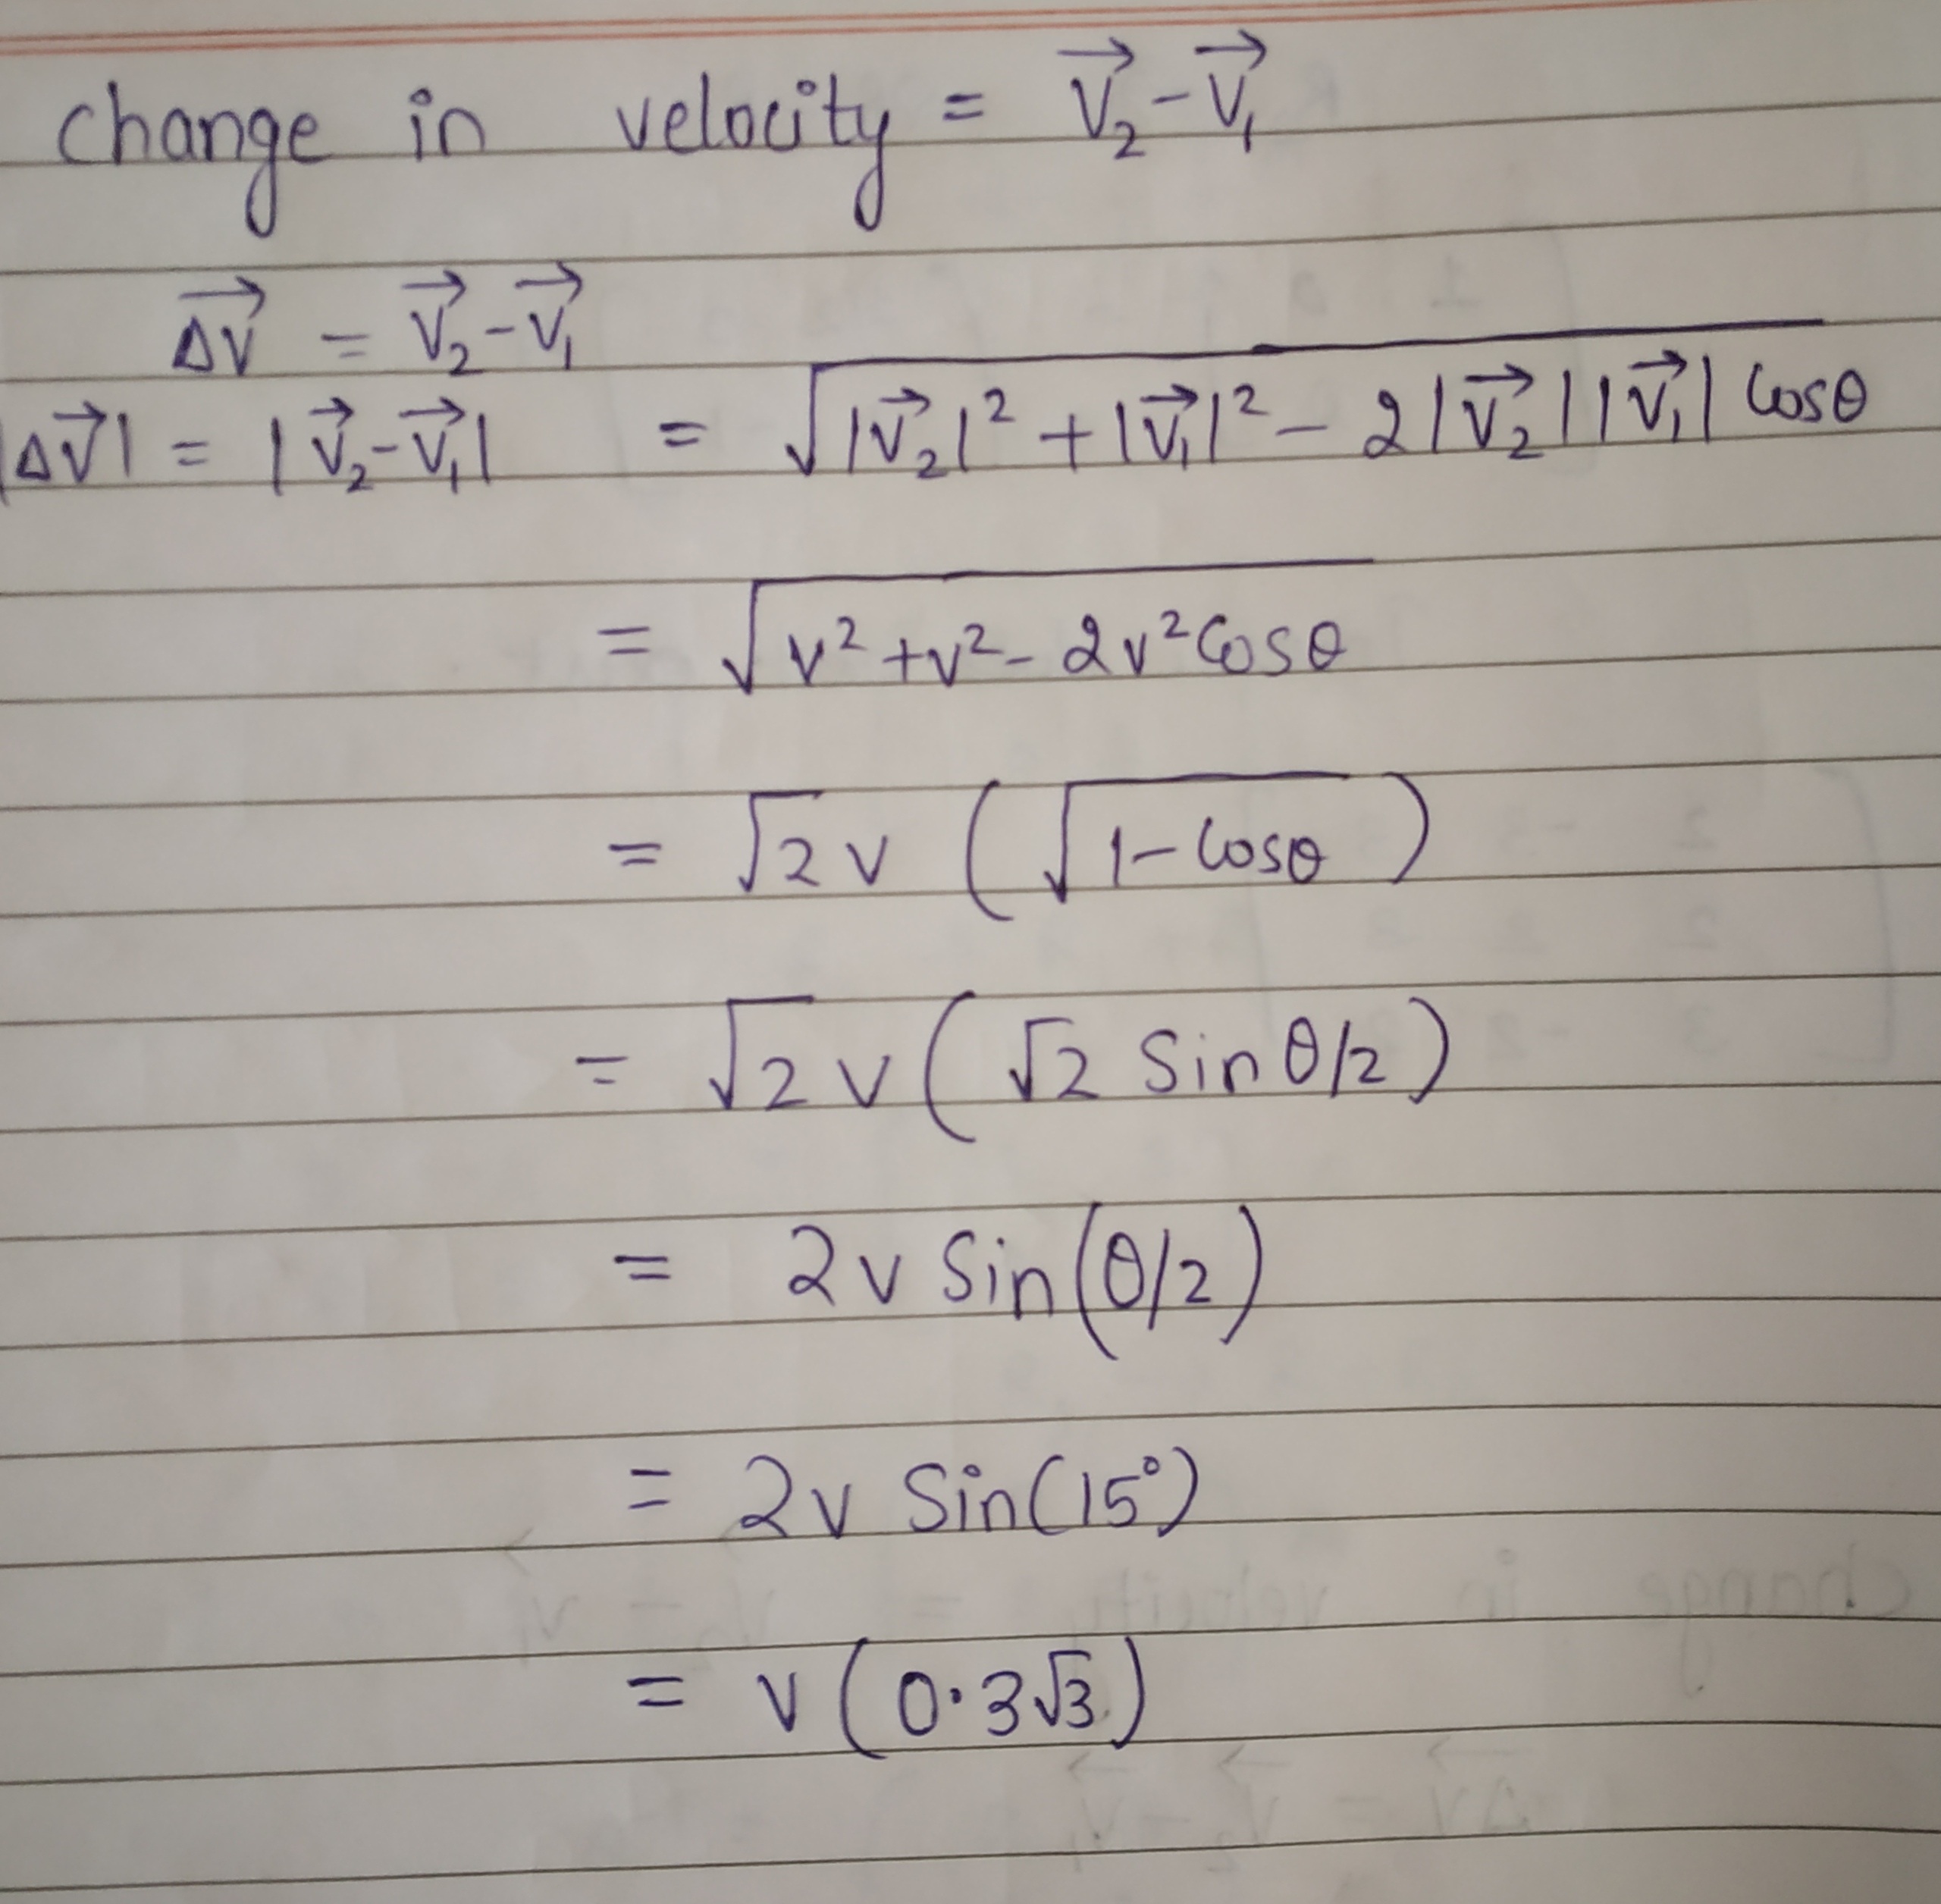 change in velocity = V⃗₂ - V⃗₁
ΔV⃗ = V⃗₂ - V⃗₁
|ΔV⃗| = |V⃗₂ - V⃗₁| = √(|V⃗₂|² + |V⃗₁|² - 2|V⃗₂||V⃗₁| Cosθ)
= √(v² + v² - 2v² Cosθ)
= √2 v (√(1 - Cosθ))
= √2 v (√2 Sin θ/2)
= 2v Sin(θ/2)
= 2v Sin(15°)
= v(0.3√3)